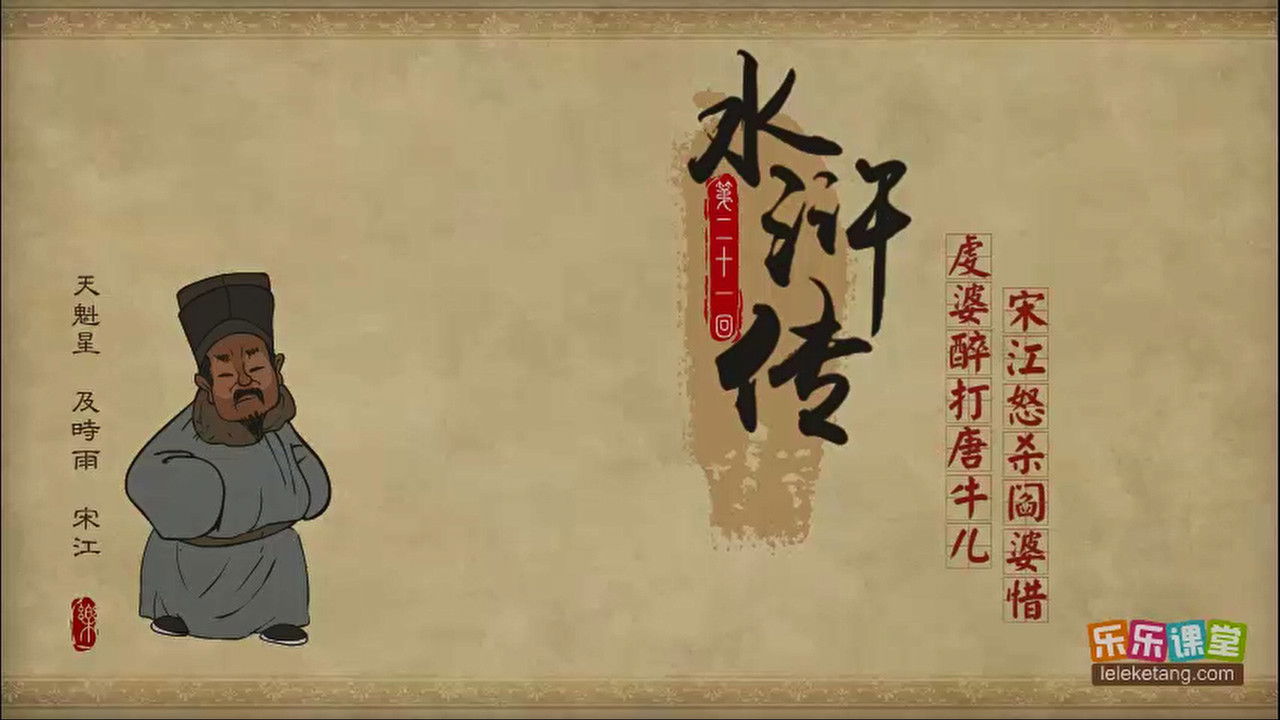 水浒传
第二十一回
虔婆醉打唐牛儿
宋江怒杀阎婆惜
天魁星 及時雨 宋江
樂
乐乐课堂
leleketang.com